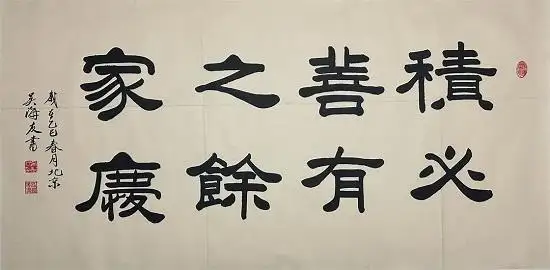 積善之家
必有餘慶
歲在乙巳春月北京
吴海友書